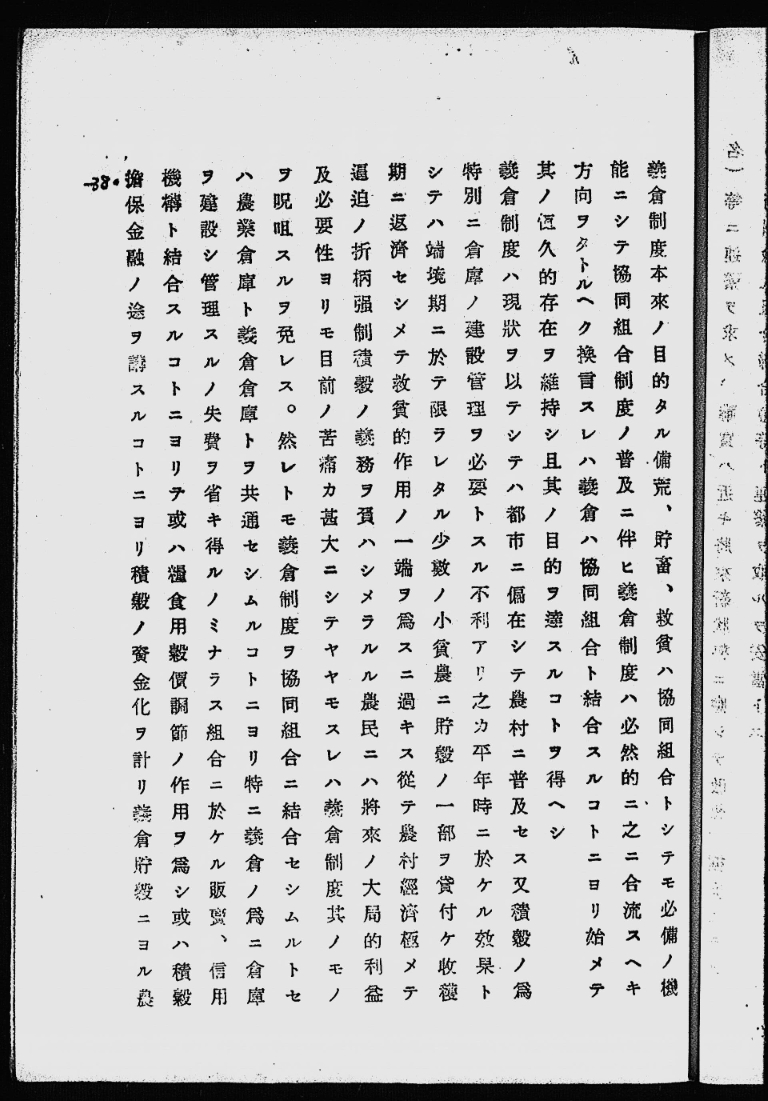 義倉制度本來ノ目的タル備荒、貯畜、救貧ハ協同組合トシテモ必備ノ機
能ニシテ協同組合制度ノ普及ニ伴ヒ義倉制度ハ必然的ニ之ニ合流スヘキ
方向ヲタトルヘク換言スレハ義倉ハ協同組合ト結合スルコトニヨリ始メテ
其ノ恆久的存在ヲ維持シ且其ノ目的ヲ達スルコトヲ得ヘシ
義倉制度ハ現狀ヲ以テシテハ都市ニ偏在シテ農村ニ普及セス又積穀ノ爲
特別ニ倉庫ノ建設管理ヲ必要トスル不利アリ之カ平年時ニ於ケル效果ト
シテハ端境期ニ於テ限ラレタル少數ノ小貧農ニ貯穀ノ一部ヲ貸付ケ收穫
期ニ返濟セシメテ救貧的作用ノ一端ヲ爲スニ過キス從テ農村經濟極メテ
逼迫ノ折柄强制積穀ノ義務ヲ負ハシメラルル農民ニハ將來ノ大局的利益
及必要性ヨリモ目前ノ苦痛カ甚大ニシテヤヤモスレハ義倉制度其ノモノ
ヲ呪咀スルヲ免レス。然レトモ義倉制度ヲ協同組合ニ結合セシムルトセ
ハ農業倉庫ト義倉倉庫トヲ共通セシムルコトニヨリ特ニ義倉ノ爲ニ倉庫
ヲ建設シ管理スルノ失費ヲ省キ得ルノミナラス組合ニ於ケル販賣、信用
機構ト結合スルコトニヨリテ或ハ糧食用穀價調節ノ作用ヲ爲シ或ハ積穀
擔保金融ノ途ヲ講スルコトニヨリ積穀ノ資金化ヲ計リ義倉貯穀ニヨル農